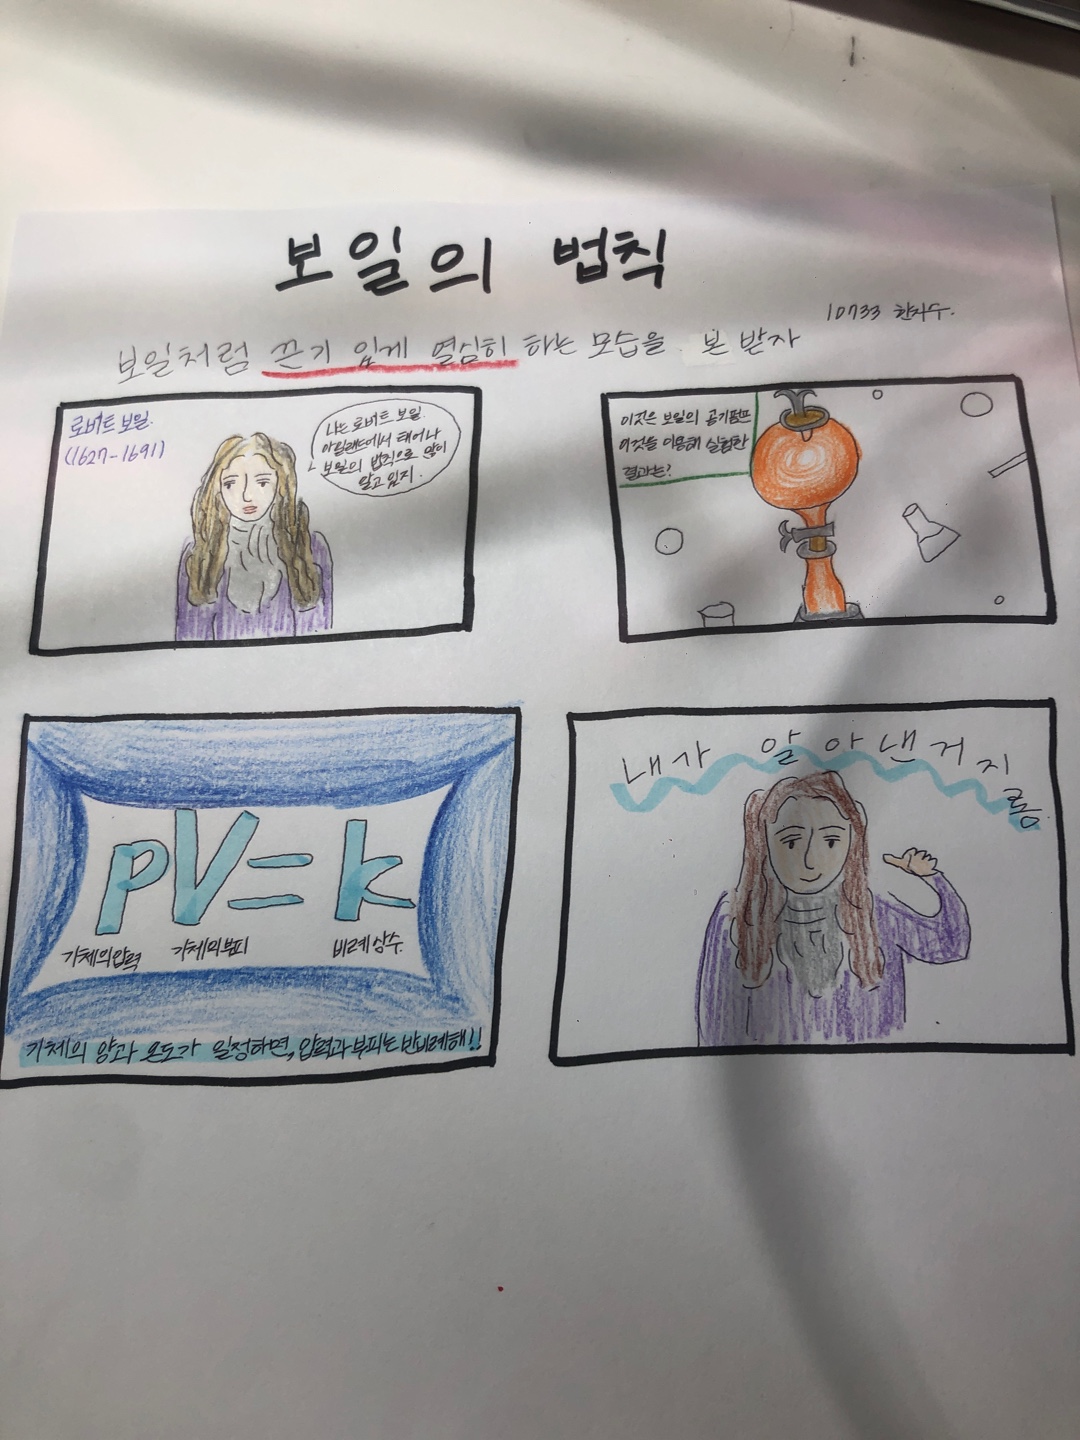 보일의 법칙
10733 한지수.
보일처럼 끈기 있게 열심히 하는 모습을 본 받자
로버트 보일.
(1627-1691)
나는 로버트 보일.
아일랜드에서 태어나
보일의 법칙으로 많이
알고 있지.
이것은 보일의 공기펌프
이것을 이용해 실험한
결과는?
PV=k
기체의 압력 기체의 부피 비례상수.
기체의 양과 온도가 일정하면, 압력과 부피는 반비례해!!
내가 알아낸거지롱